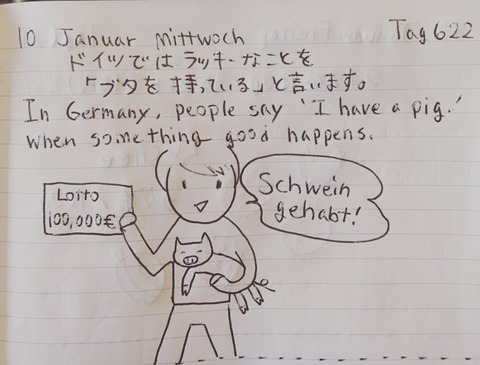 10 Januar Mittwoch Tag 622
ドイツではラッキーなことを
「ブタを持っている」と言います。
In Germany, people say 'I have a pig.'
when something good happens.
Lotto
100,000€
Schwein
gehabt!